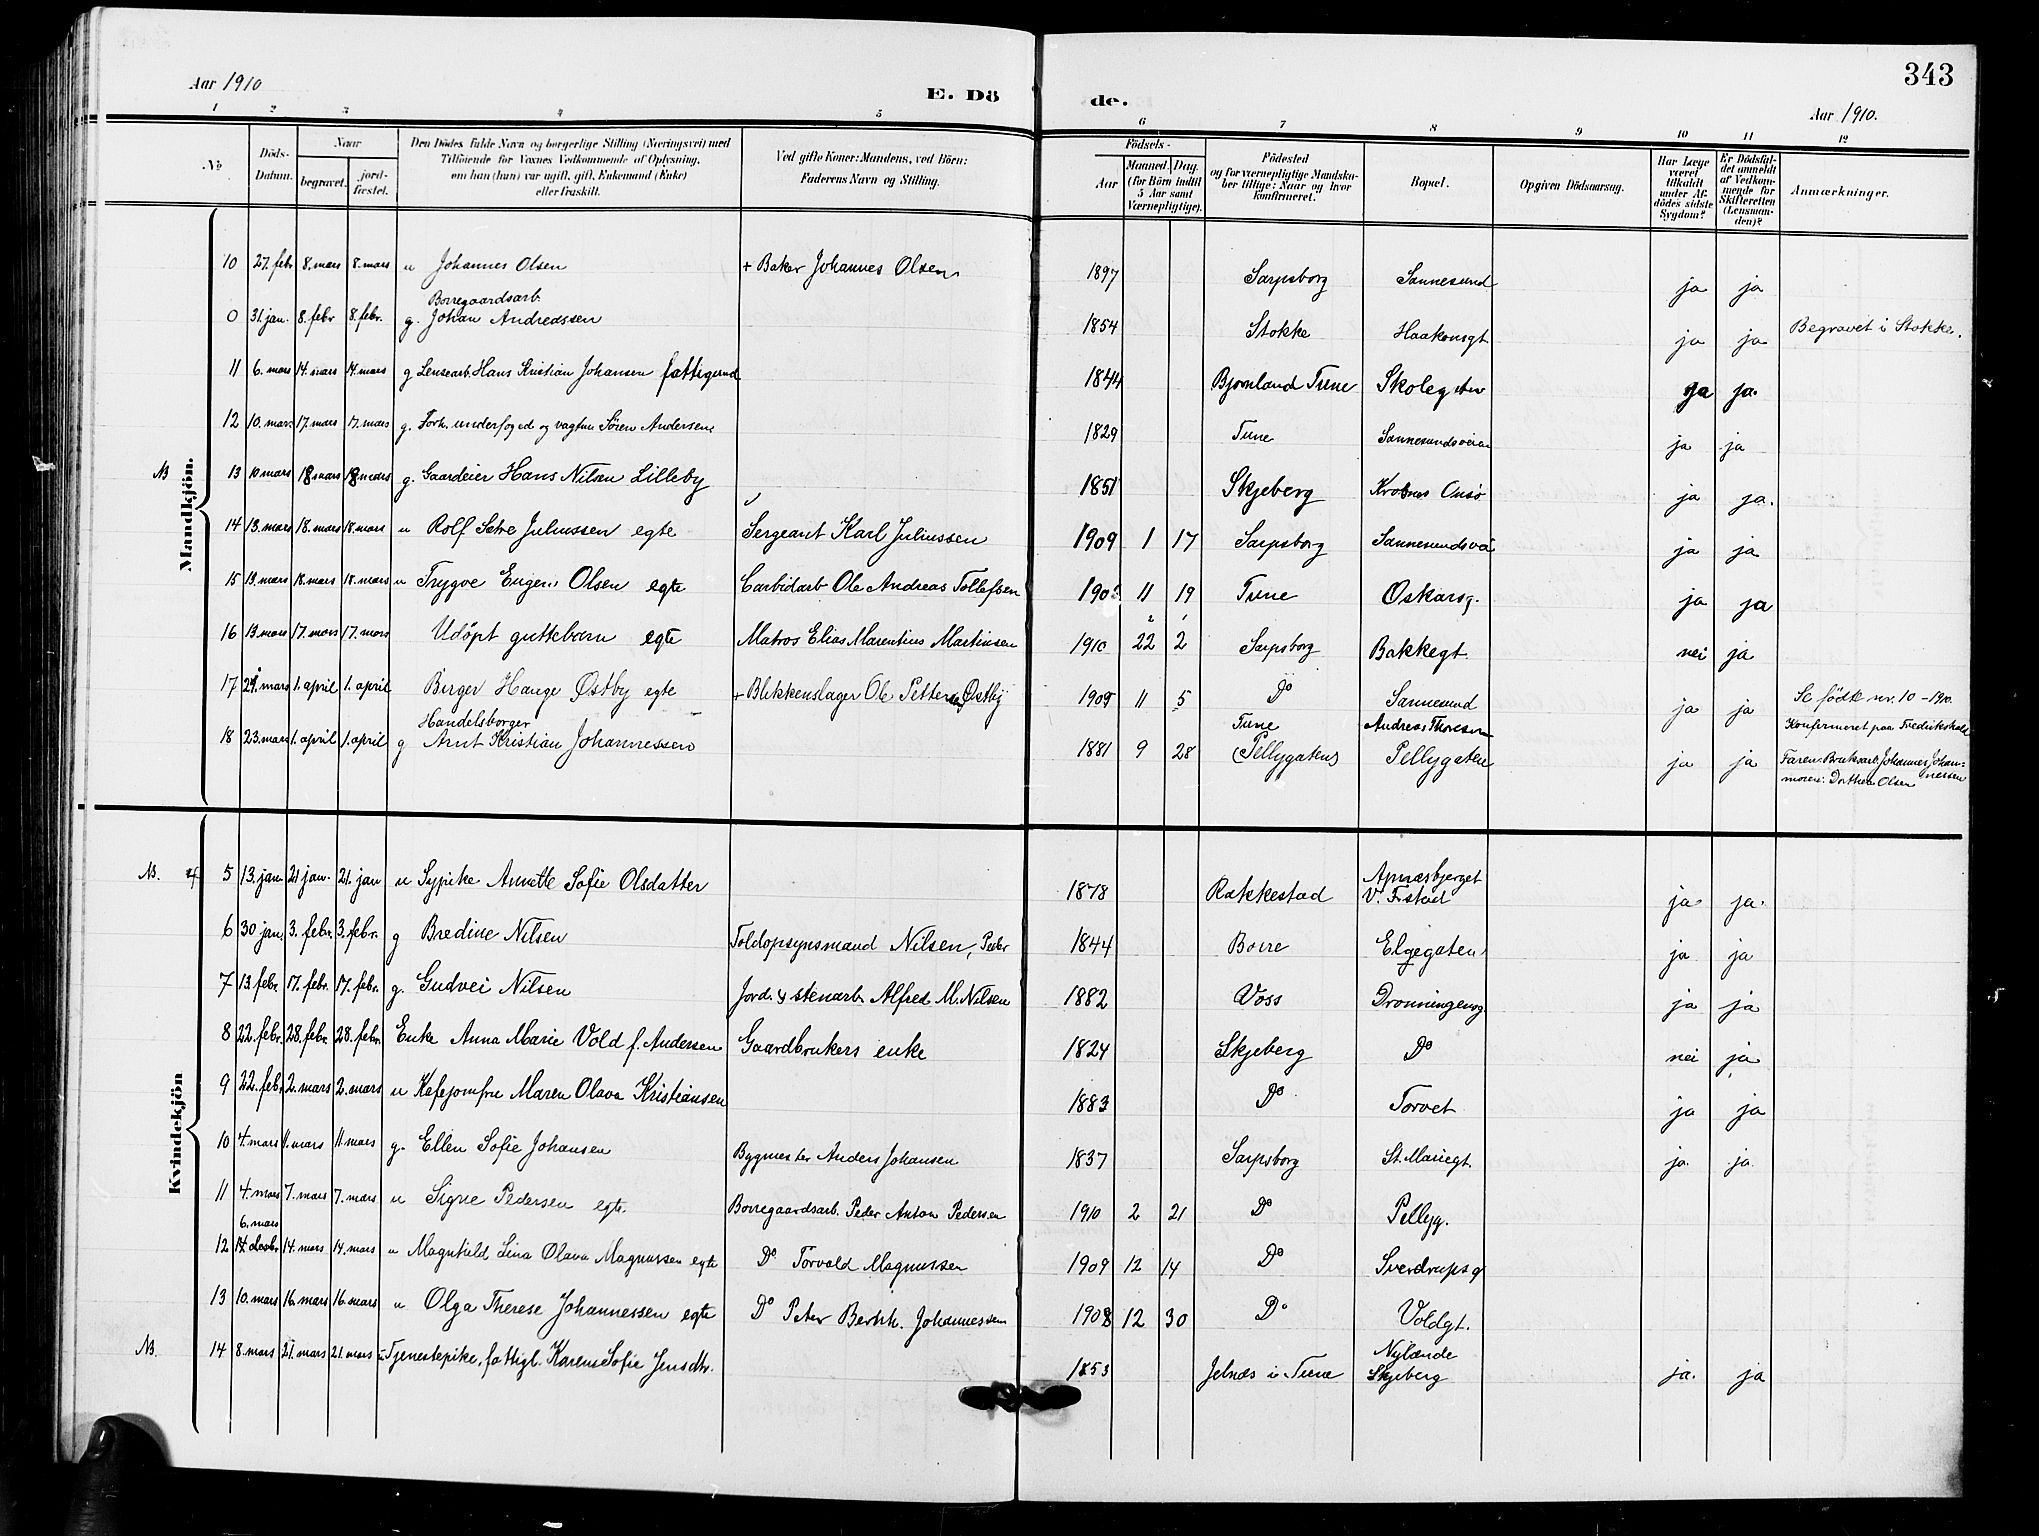 Aar 1910
E. Dö de.
343
Aar 1910.
1 2 3 4 5 6 7 8 9 10 11 12
No.
Döds-Datum.
Naar
begravet.
jord-fæstet.
Den Dödes fulde Navn og borgerlige Stilling (Næringsvei) med
Tilföiende for Voxnes Vedkommende af Oplysning,
om han (hun) var ugift, gift, Enkemand (Enke)
eller fraskilt.
Ved gifte Koner: Mandens, ved Börn:
Faderens Navn og Stilling.
Födsels-
Aar
Maaned. Dag.
(for Börn indtil
5 Aar samt
Værnepligtige).
Födested
og for værnepligtige Mandska-
ber tillige: Naar og hvor
konfirmeret.
Bopæl.
Opgiven Dödsaarsag.
Har Læge
været
tilkaldt
under Af-
dödes sidste
Sygdom?
Er Dödsfal-
det anmeldt
af Vedkom-
mende for
Skifteretten
(Lensman-
den)?
Anmærkninger.
Mandkjön.
10 27. febr 8. mars 8. mars u Johannes Olsen + Baker Johannes Olsen 1897 Sarpsborg Sannesund ja ja
Borregaardsarb.
0 31. jan. 8. febr 8. febr. g. Johan Andreassen 1854 Stokke Haakonsgt ja ja Begravet i Stokke.
11 6. mars 14. mars 14. mars g Lensearb. Hans Kristian Johansen fattigund 1844 Bjørnland Tune Skoleg ja ja.
12 10. mars 17. mars 17. mars g. Forh. underfoged og vagtm Søren Andersen 1829 Tune Sannesundsveien ja ja
NB 13 10 mars 18 mars 18 mars g. Gaardeier Hans Nilsen Lilleby 1851 Skjeberg Onsø ja ja.
14 13. mars 18. mars 18. mars u Rolf Juliussen egte Sergeant Karl Juliussen 1909 1 17 Sarpsborg Sannesundsvei ja ja
15 13. mars 18. mars 18. mars u Trygve Eugen Olsen egte Carbidarb Ole Andreas Tollefsen 11 19 Tune Oskarsg. ja ja
16 13. mars 17. mars 17. mars Udöpt guttebarn egte Matros Elias Marentius Martinsen 1910 22 2 Sarpsborg Bakkegt. nei ja
17 mars 1. april 1. april Birger Hauge Østby egte + Blikkenslager Ole Petter Østby 1909 11 5 Do Sannesund ja ja Se födte nr. 10 - 1910.
Handelsborger Tune Andreas Konfirmeret paa Fredrikshald
18 23. mars 1. april 1. april g Arnt Kristian Johannessen 1881 9 28 (Pellygaten) Pellygaten ja ja Faren: Bruksarb. Johannes Johan-
nessen
moren: Dorthea Olsen
Kvindekjön
NB. 4 5 13. jan. 21 jan. 21. jan u Sypike Annette Sofie Olsdatter 1878 Rakkestad Apnæsbjerget
V. Frstad ja ja.
6 30 jan. 3. febr. 3. febr. g Bredine Nilsen Toldopsynsmand Nilsen, Peder 1844 Borre Elgegaten ja ja
7 13. febr. 17. febr. 17. febr. g. Gudvei Nilsen Jord. & stenarb. Alfred M. Nilsen 1882 Voss Dronningensg. ja ja
8 22. febr. 28. febr. 28. febr. Enke Anna Marie Vold f. Andersen Gaardbrukers enke 1824 Skjeberg Do nei ja
9 22. feb. 2. mars 2. mars u Kafejomfru Maren Olava Kristiansen 1883 Do Torvet ja ja
10 4. mars 11. mars 11. mars g. Ellen Sofie Johansen Bygmester Anders Johansen 1837 Sarpsborg St. Mariegt. ja. ja.
11 4. mars 7. mars 7. mars u Signe Pedersen egte. Borregaardsarb. Peder Anton Pedersen 1910 2 21 Do Pellyg.
6. mars
12 14 desbr. 14. mars 14. mars u Magnhild Lina Olava Magnussen egte Do Torvald Magnussen 1909 12 14 Do Sverdrupsg
13 10. mars 16. mars 16. mars u Olga Therese Johannessen egte Do Peter Bernh. Johannessen 1908 12 30 Do Voldgt.
NB. 14 8. mars 21. mars 21. mars u Tjenestepike, fattigl. Karen Sofie Jensdtr. 1853 Jelnæs i Tune Nylænde
Skjeberg ja. ja